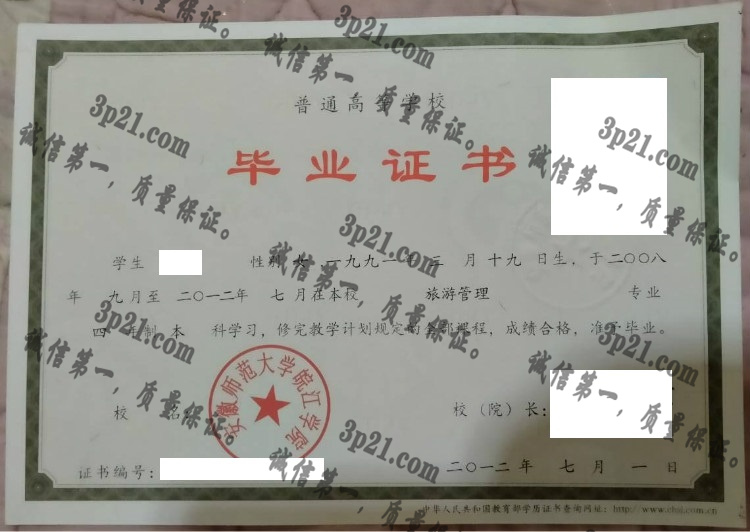 3p21.com
诚信第一，质量保证。
普通高等学校
3p21.com
诚信第一，质量保证。
3p21.com
诚信第一，质量保证。
毕业证书
学生 性别 女 一九九一年 三 月 十九 日生，于 二〇〇八
年 九 月至 二〇一二年 七 月在本校 旅游管理 专业
四 年制 本 科学习，修完教学计划规定的全部课程，成绩合格，准予毕业。
3p21.com
诚信第一，质量保证。
3p21.com
诚信第一，质量保证。
3p21.com
诚信第一，质量保证。
安徽师范大学皖江学院
校 名： 校（院）长：
3p21.com
诚信第一，质量保证。
证书编号： 二〇一二年 七 月 一 日
中华人民共和国教育部学历证书查询网址：http://www.chsi.com.cn